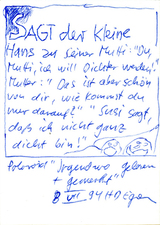 SAGT der Kleine
Hans zu seiner Mutti: "Du,
Mutti, ich will Dichter werden!"
Mutter: "Das ist aber schön
von dir, wie kommst du
nur darauf?" "Susi sagt,
daß ich nicht ganz
dicht bin!"
"Irgendwo gelesen
+ gemerkt"
8 VII 94 HD Egon